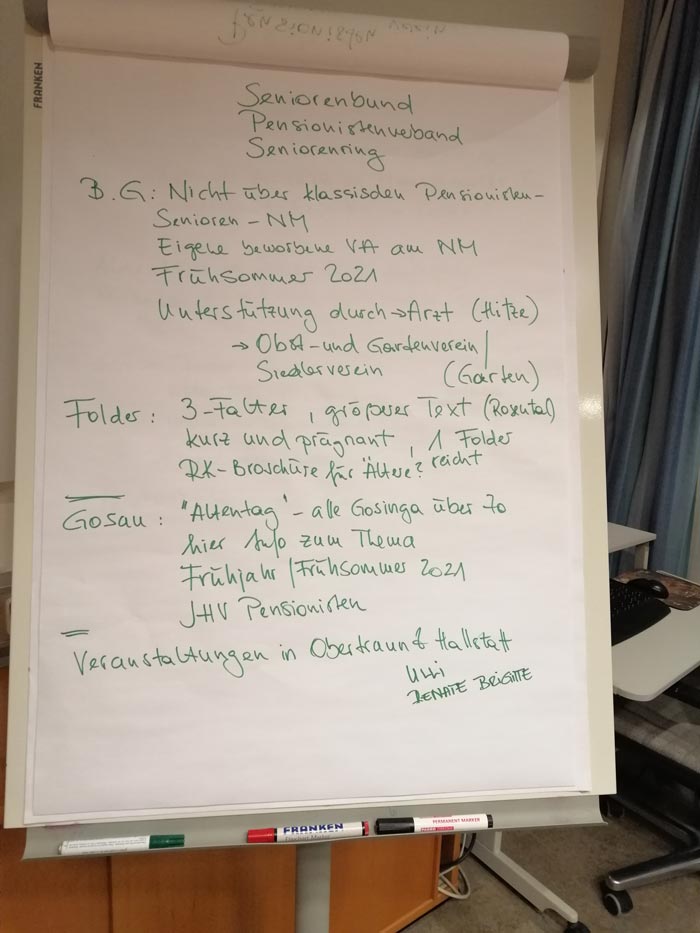 FRANKEN
Seniorenbund
Pensionistenverband
Seniorenring
B.G.: Nicht über klassischen Pensionisten-
Senioren-NM
Eigene beworbene VA am NM
Frühsommer 2021
Unterstützung durch → Arzt (Hitze)
→ Obst- und Gartenverein/
Siedlerverein (Garten)
Folder: 3-Falter, größerer Text (Rosental)
kurz und prägnant, 1 Folder
reicht
RK-Broschüre für Ältere?
Gosau: "Altentag" - alle Gosinga über 70
hier Info zum Thema
Frühjahr/Frühsommer 2021
JHV Pensionisten
Veranstaltungen in Obertraun & Hallstatt
Ulli
RENATE BRIGITTE
FRANKEN
PERMANENT MARKER